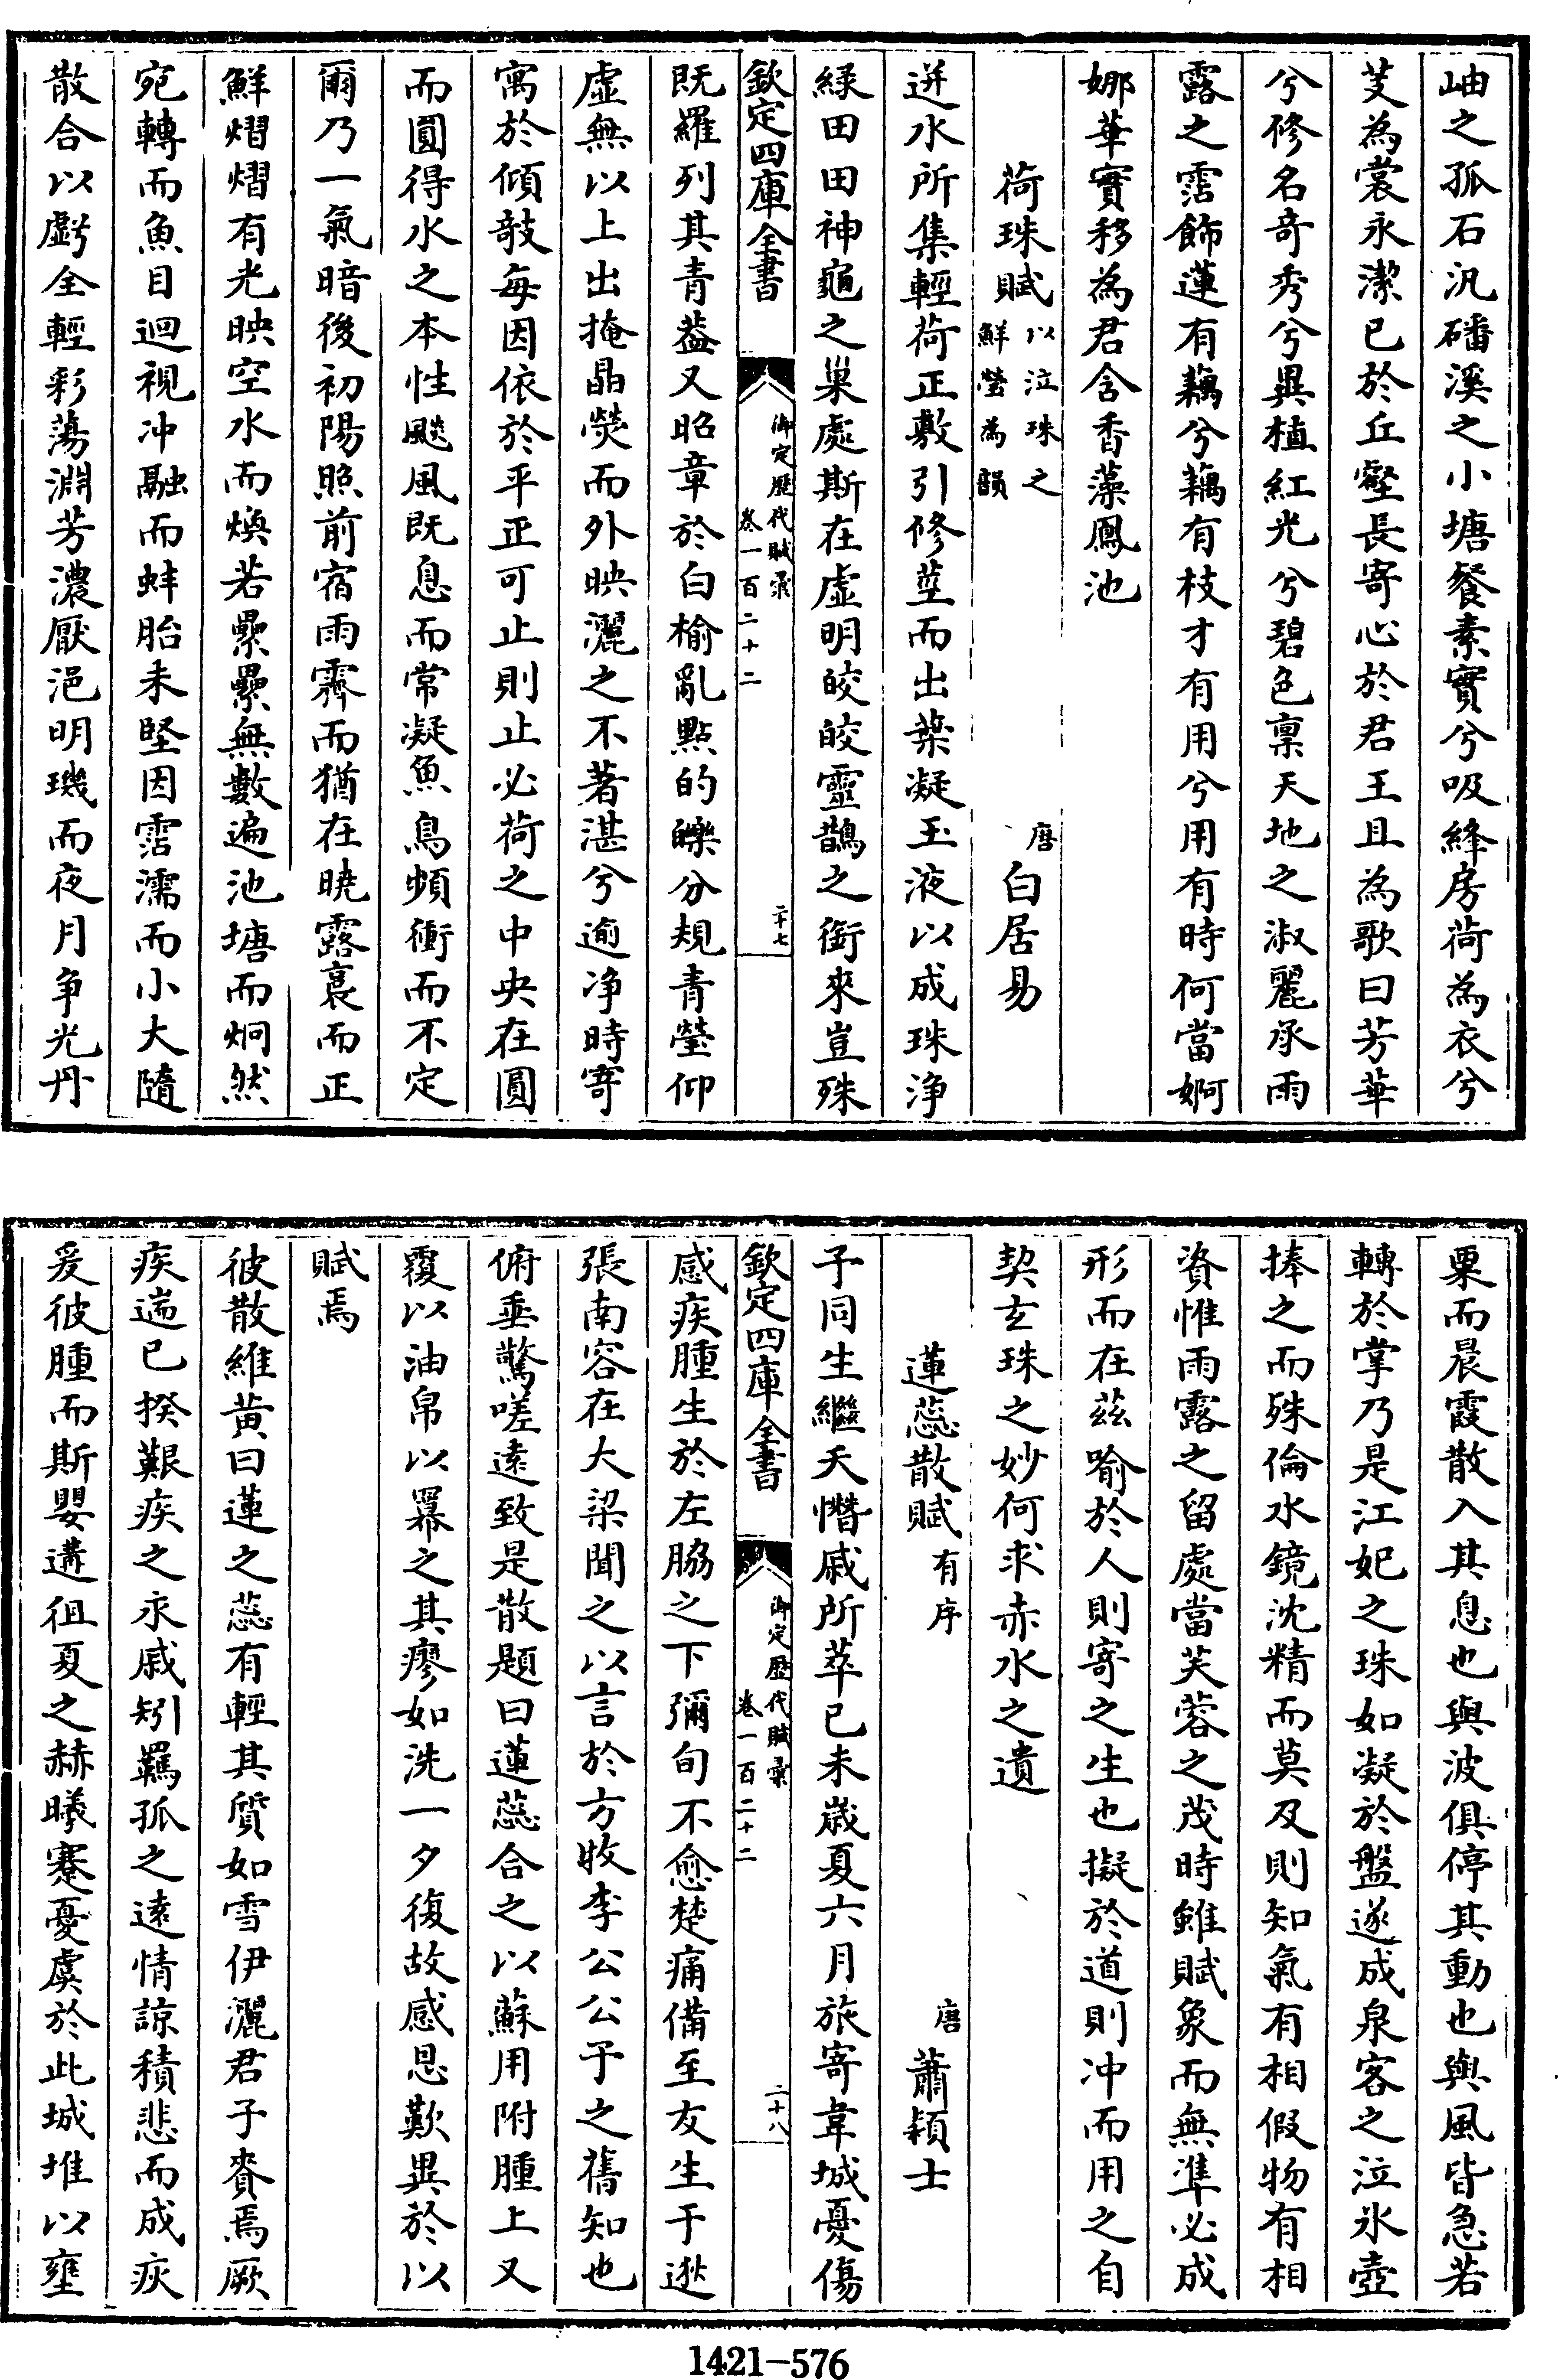 岫之孤石汎磻溪之小塘餐素實兮吸絳房荷為衣兮
芰為裳永潔已於丘壑長寄心於君王且為歌曰芳華
兮修名奇秀兮兮異植紅光兮碧色稟天地之淑麗承雨
露之霑飾蓮有藕兮藕有枝才有用兮用有時何當婀
娜華實移為君含香藻鳳池
荷珠賦以泣珠之鮮瑩為韻 唐白居易
迸水所集輕荷正敷引修莖而出葉凝玉液以成珠浄
緑田田神龜之巢處斯在虛明皎皎靈鵲之銜來豈殊
欽定四庫全書 御定歷代賦彙 卷一百二十二 二十七
既羅列其青葢又昭章於白榆亂點的皪分規青瑩仰
虛無以上出掩晶熒而外映灑之不著湛兮逾净時寄
寓於傾敧每因依於平正可止則止必荷之中央在圓
而圓得水之本性飈風既息而常凝魚鳥頻衝而不定
爾乃一氣暗後初陽照前宿雨霽而猶在曉露裛而正
鮮熠熠有光映空水而煥若纍纍無數遍池塘而炯然
宛轉而魚目迴視冲融而蚌胎未堅因霑濡而小大隨
散合以虧全輕彩蕩淵芳濃厭浥明璣而夜月争光丹
粟而晨霞散入其息也與波俱停其動也與風皆急若
轉於掌乃是江妃之珠如凝於盤遂成泉客之泣氷壺
捧之而殊倫水鏡沈精而莫及則知氣有相假物有相
資惟雨露之留處當芙蓉之茂時雖賦象而無準必成
形而在茲喻於人則寄之生也擬於道則冲而用之自
契玄珠之妙何求赤水之遺
蓮蕊散賦有序 唐蕭穎士
予同生繼夭憯戚所萃已未歲夏六月旅寄韋城憂傷
欽定四庫全書 御定歷代賦彙 卷一百二十二 二十八
感疾腫生於左脇之下彌旬不愈楚痛備至友生于逖
張南容在大梁聞之以言於方牧李公公予之舊知也
俯垂驚嗟遠致是散題曰蓮蕊合之以蘇用附腫上又
覆以油帛以羃之其瘳如洗一夕復故感恩歎異於以
賦焉
彼散維黄曰蓮之蕊有輕其質如雪伊灑君子賚焉厥
疾遄已揆艱疾之永戚矧羈孤之遠情諒積悲而成疢
爰彼腫而斯嬰遘徂夏之赫曦蹇憂虞於此城堆以壅
1421-576